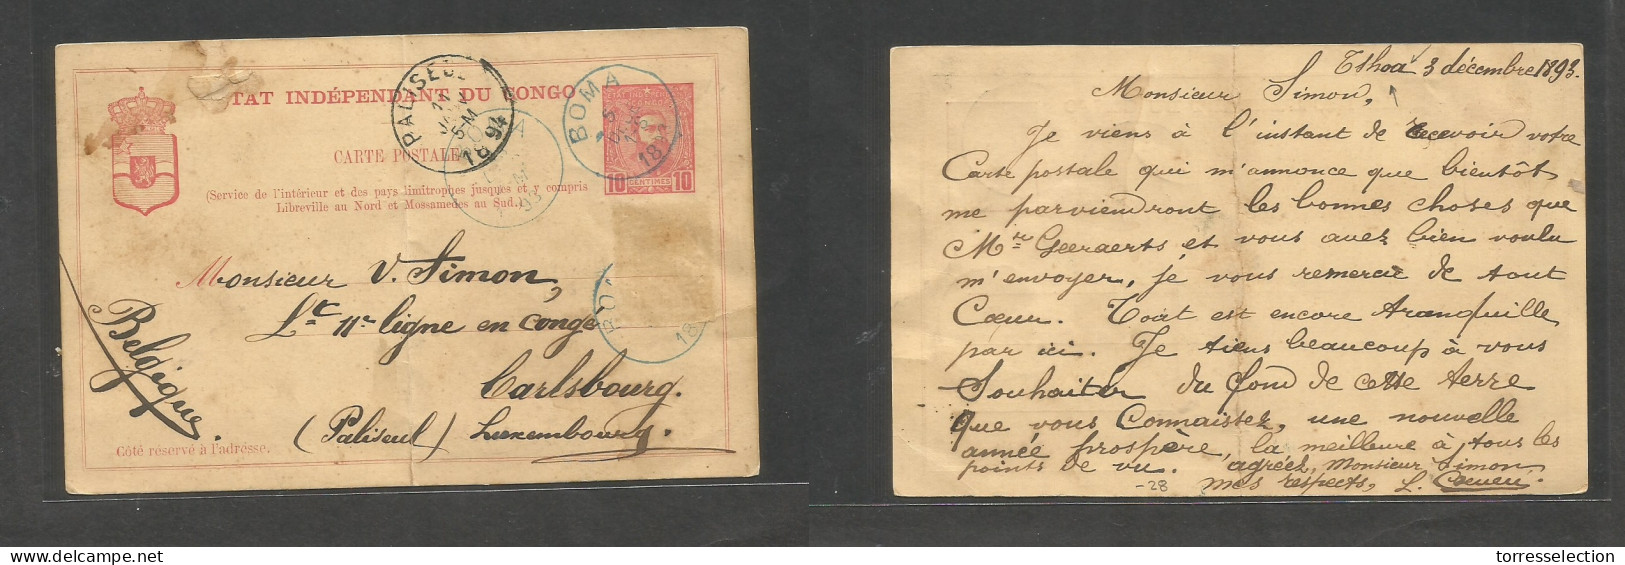 TAT INDÉPENDANT DU CONGO
PALISEUL
5-M
1894
BOMA
5
189
CARTE POSTALE
10 CENTIMES 10
(Service de l'intérieur et des pays limitrophes jusques et y compris
Libreville au Nord et Mossamedes au Sud.)
Monsieur V. Simon,
Lt 11e ligne en congé
BO
18
Carlsbourg.
(Paliseul) Luxembourg.
Belgique.
Côté réservé à l'adresse.
Tshoa 3 décembre 1893.
Monsieur Simon,
Je viens à l'instant de recevoir votre
Carte postale qui m'annonce que bientôt
me parviendront les bonnes choses que
Mr Geeraerts et vous avez bien voulu
m'envoyer, je vous remercie de tout
Cœur. Toat est encore tranquille
par ici. Je tiens beaucoup à vous
Souhaiter du fond de cette terre
que vous Connaissez, une nouvelle
année prospère, la meilleure à tous les
points de vu. agréez, Monsieur Simon
-28 mes respects, L.
torresselection